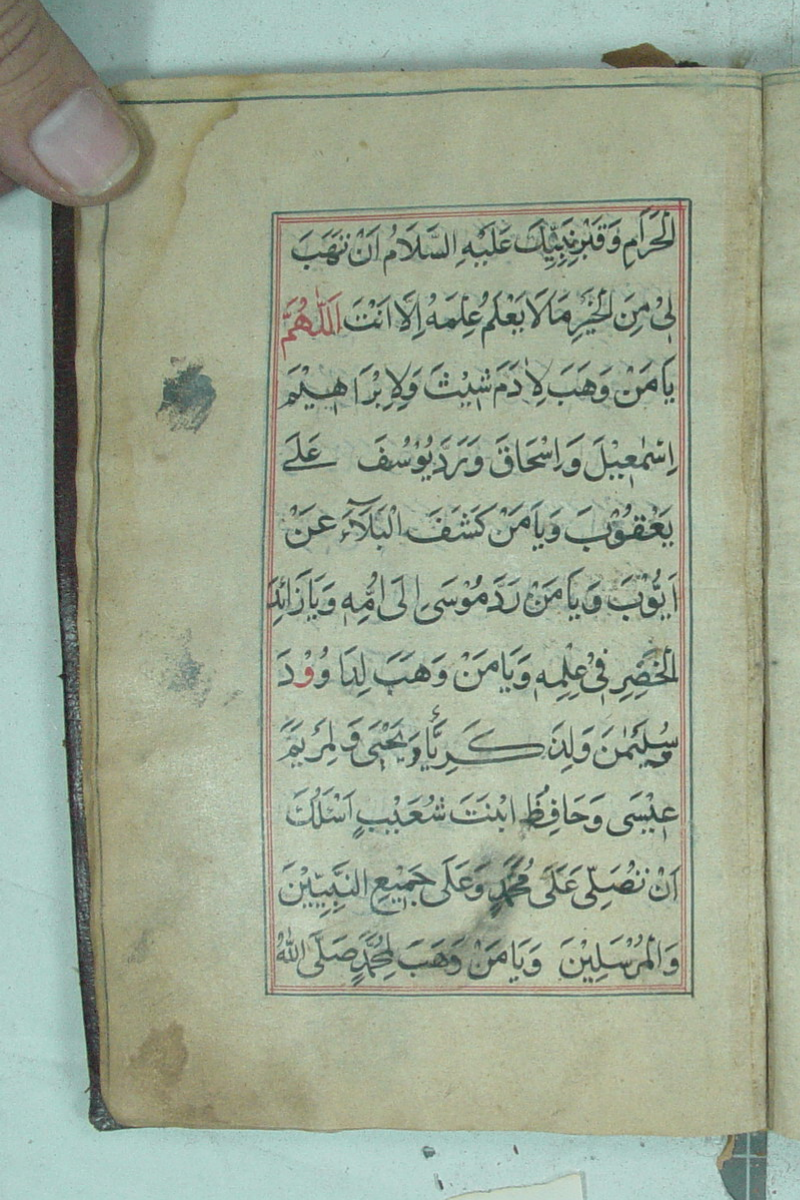 الْحَرَامِ وَقَبْرِ نَبِيِّكَ عَلَيْهِ السَّلَامُ اَنْ تَهَبَ
لِيْ مِنَ الْخَيْرِ مَا لَا يَعْلَمُ عِلْمَهُ اِلَّا اَنْتَ اَللّٰهُمَّ
يَا مَنْ وَهَبَ لِاٰدَمَ شِيْثَ وَلِاِبْرَاهِيْمَ
اِسْمٰعِيْلَ وَاِسْحَاقَ وَرَدَّ يُوْسُفَ عَلٰى
يَعْقُوْبَ وَيَا مَنْ كَشَفَ الْبَلَآءَ عَنْ
اَيُّوْبَ وَيَا مَنْ رَدَّ مُوْسٰى اِلَى اُمِّهٖ وَيَا زَائِدَ
الْخَضِرِ فِيْ عِلْمِهٖ وَيَا مَنْ وَهَبَ لِدَاوُوْدَ
سُلَيْمٰنَ وَلِزَكَرِيَّاءَ يَحْيٰى وَلِمَرْيَمَ
عِيْسٰى وَحَافِظَ ابْنَتَ شُعَيْبٍ اَسْئَلُكَ
اَنْ تُصَلِّىَ عَلٰى مُحَمَّدٍ وَعَلٰى جَمِيْعِ النَّبِيِّيْنَ
وَالْمُرْسَلِيْنَ وَيَا مَنْ وَهَبَ لِمُحَمَّدٍ صَلَّى اللّٰهُ